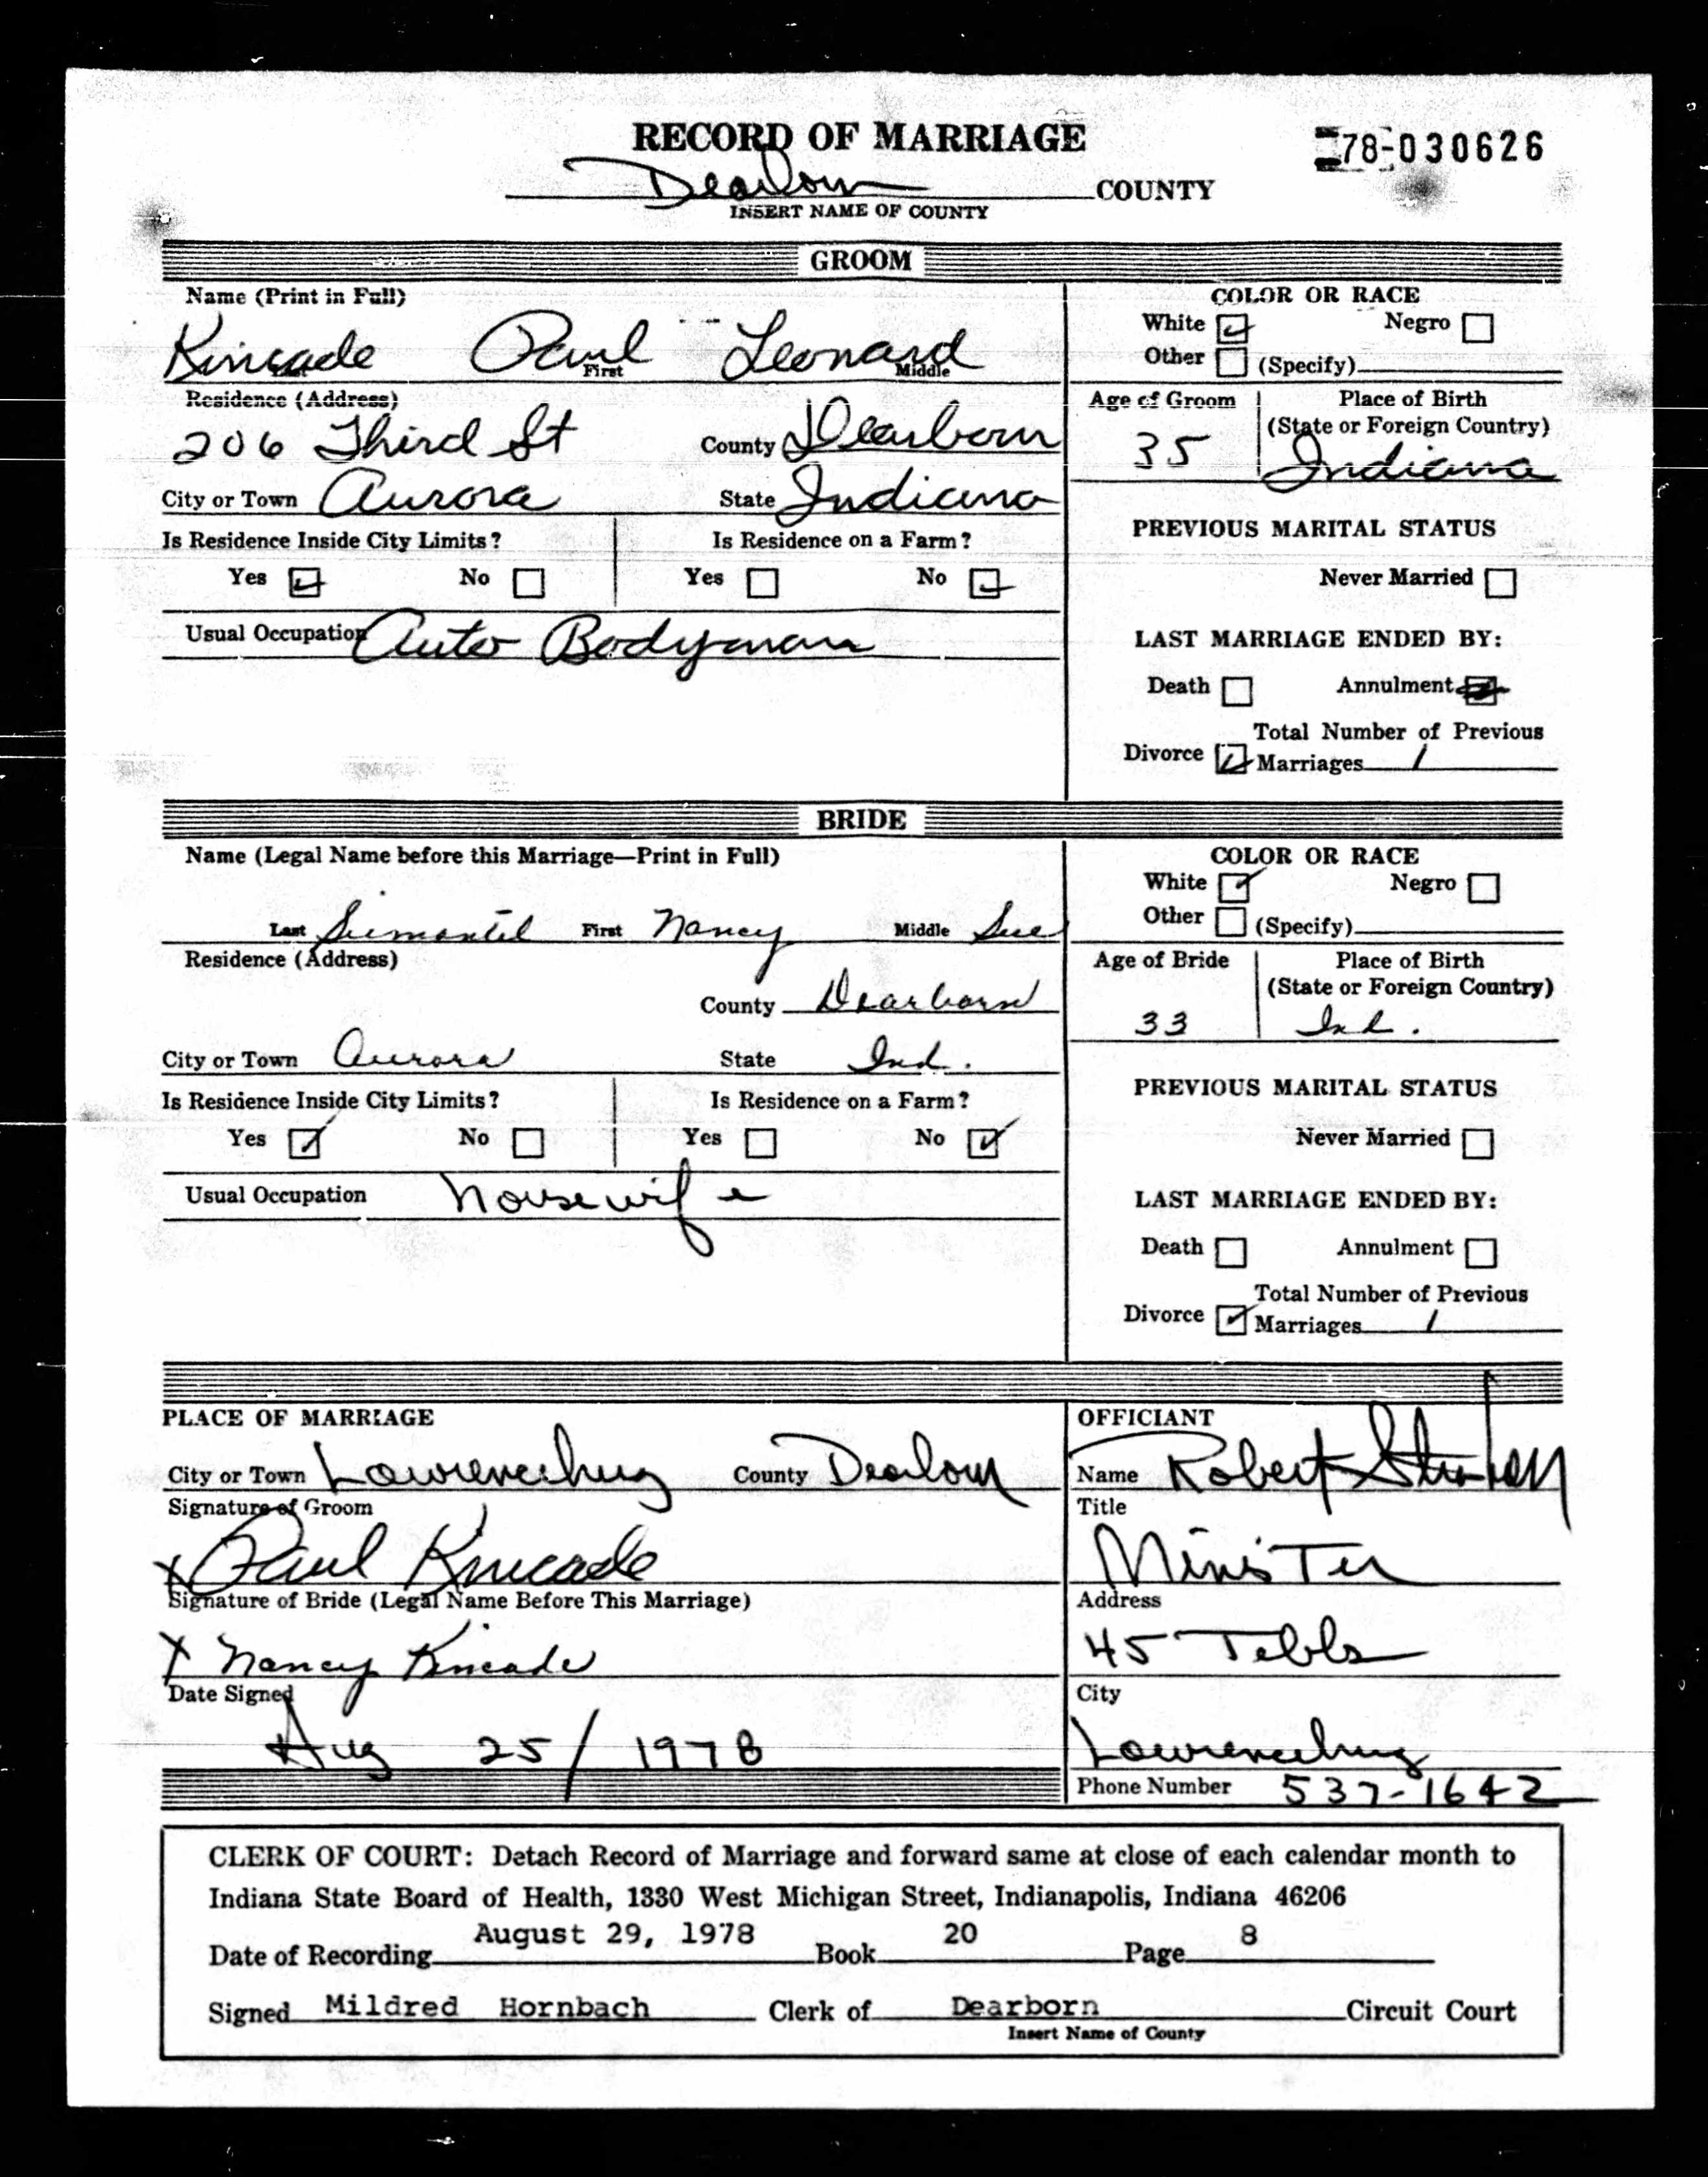 RECORD OF MARRIAGE
78-030626
Dearborn COUNTY
INSERT NAME OF COUNTY
GROOM
Name (Print in Full)
Kincade Paul Leonard
Last First Middle
Residence (Address)
206 Third St County Dearborn
City or Town Aurora State Indiana
Is Residence Inside City Limits? Is Residence on a Farm?
Yes No Yes No
Usual Occupation Auto Bodyman
COLOR OR RACE
White Negro
Other (Specify)
Age of Groom Place of Birth
(State or Foreign Country)
35 Indiana
PREVIOUS MARITAL STATUS
Never Married
LAST MARRIAGE ENDED BY:
Death Annulment
Total Number of Previous
Divorce Marriages 1
BRIDE
Name (Legal Name before this Marriage—Print in Full)
Last First Nancy Middle Sue
Residence (Address)
County Dearborn
City or Town Aurora State Ind.
Is Residence Inside City Limits? Is Residence on a Farm?
Yes No Yes No
Usual Occupation housewife
COLOR OR RACE
White Negro
Other (Specify)
Age of Bride Place of Birth
(State or Foreign Country)
33 Ind.
PREVIOUS MARITAL STATUS
Never Married
LAST MARRIAGE ENDED BY:
Death Annulment
Total Number of Previous
Divorce Marriages 1
PLACE OF MARRIAGE
City or Town Lawrenceburg County Dearborn
Signature of Groom
X Paul Kincade
Signature of Bride (Legal Name Before This Marriage)
X Nancy Kincade
Date Signed
Aug 25/1978
OFFICIANT
Name Robert
Title
Minister
Address
45 Tebbs
City
Lawrenceburg
Phone Number 537-1642
CLERK OF COURT: Detach Record of Marriage and forward same at close of each calendar month to
Indiana State Board of Health, 1330 West Michigan Street, Indianapolis, Indiana 46206
Date of Recording August 29, 1978 Book 20 Page 8
Signed Mildred Hornbach Clerk of Dearborn Circuit Court
Insert Name of County